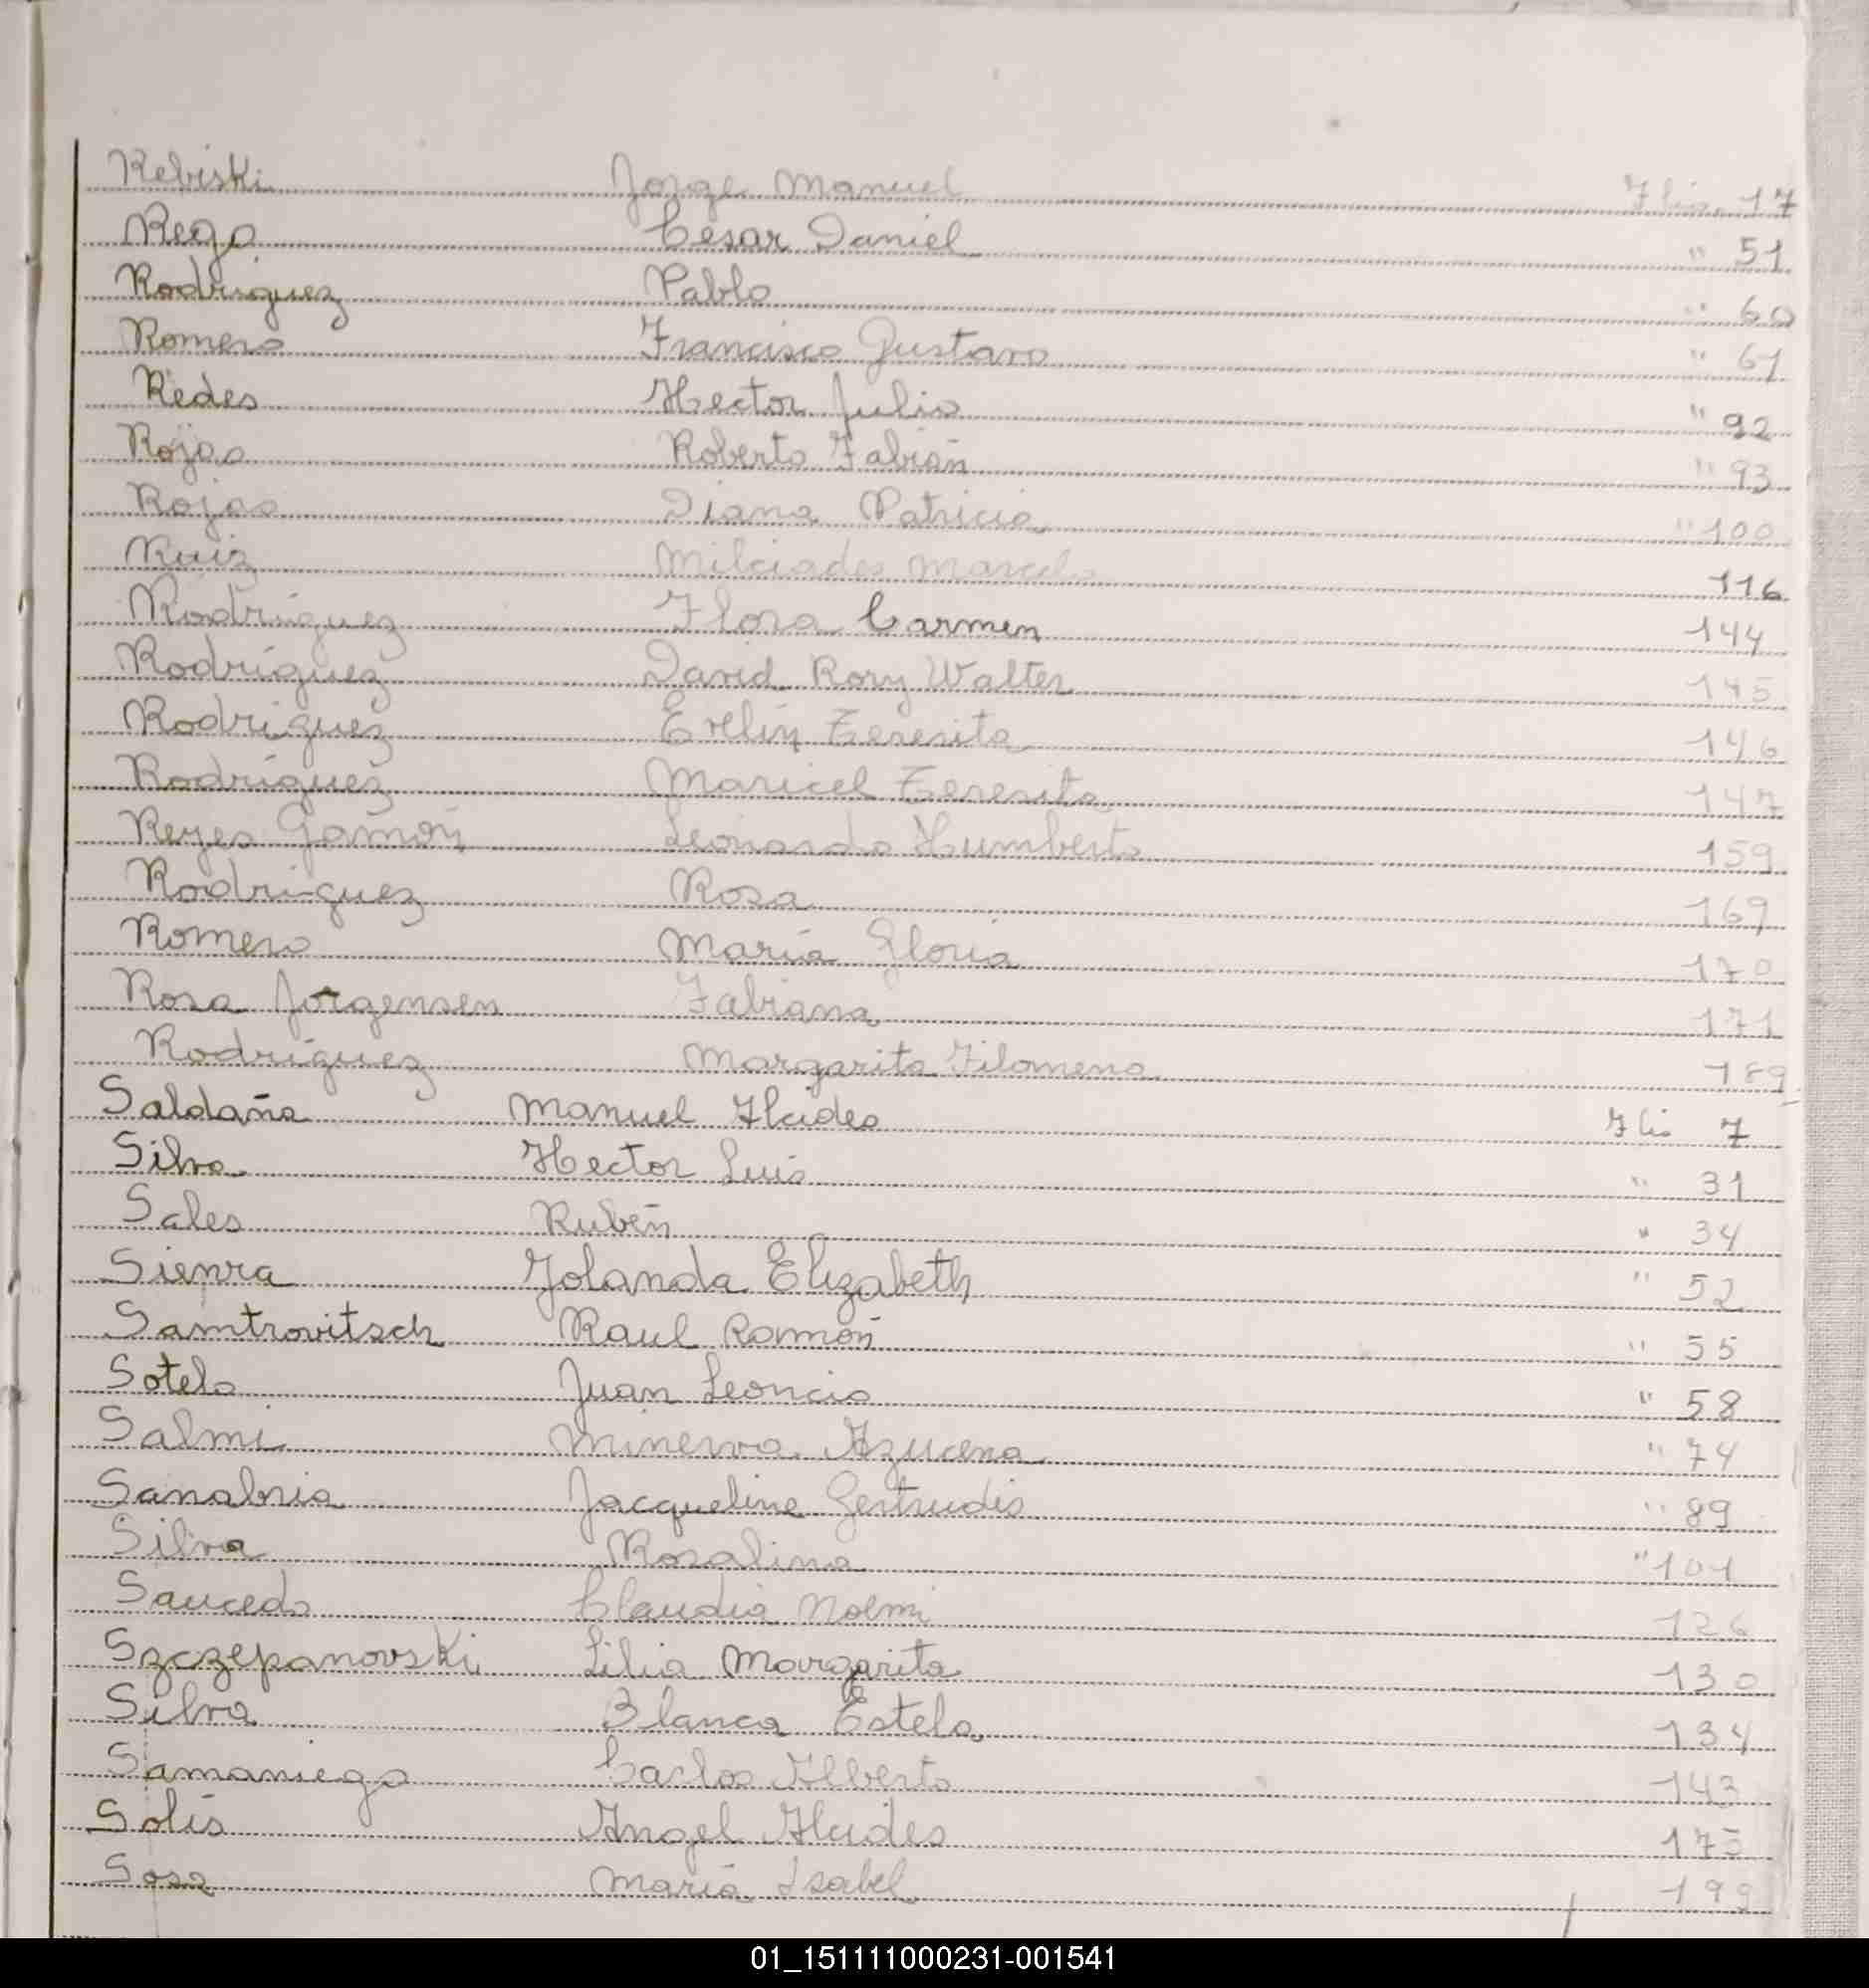 Rebiski Jorge Manuel Flio. 17
Rego Cesar Daniel " 51
Rodriguez Pablo " 60
Romero Francisco Gustavo " 61
Redes Hector Julio " 92
Rojas Roberto Fabián " 93
Rojas Diana Patricia " 100
Ruiz Milciades Marcelo 116
Rodriguez Flora Carmen 144
Rodríguez David Rory Walter 145
Rodriguez Teresita 146
Rodríguez Maricel Teresita 147
Reyes Gamón Leonardo Humberto 159
Rodriguez Rosa 169
Romero María Gloria 170
Rosa Jorgensen Fabiana 171
Rodríguez Margarita Filomena 189
Saldaña Manuel Alcides Flio 7
Silva Hector Luis " 31
Sales Rubén " 34
Sienra Yolanda Elizabeth " 52
Samtrovitsch Raul Ramón " 55
Sotelo Juan Leoncio " 58
Salmi Minerva Azucena " 74
Sanabria Jacqueline Gertrudis " 89
Silva Rosalina " 101
Saucedo Claudia Noemi 126
Szczepanovski Lilia Margarita 130
Silva Blanca Estela 134
Samaniego Carlos Alberto 143
Solís Angel Alcides 175
Sosa María Isabel 199
01_151111000231-001541